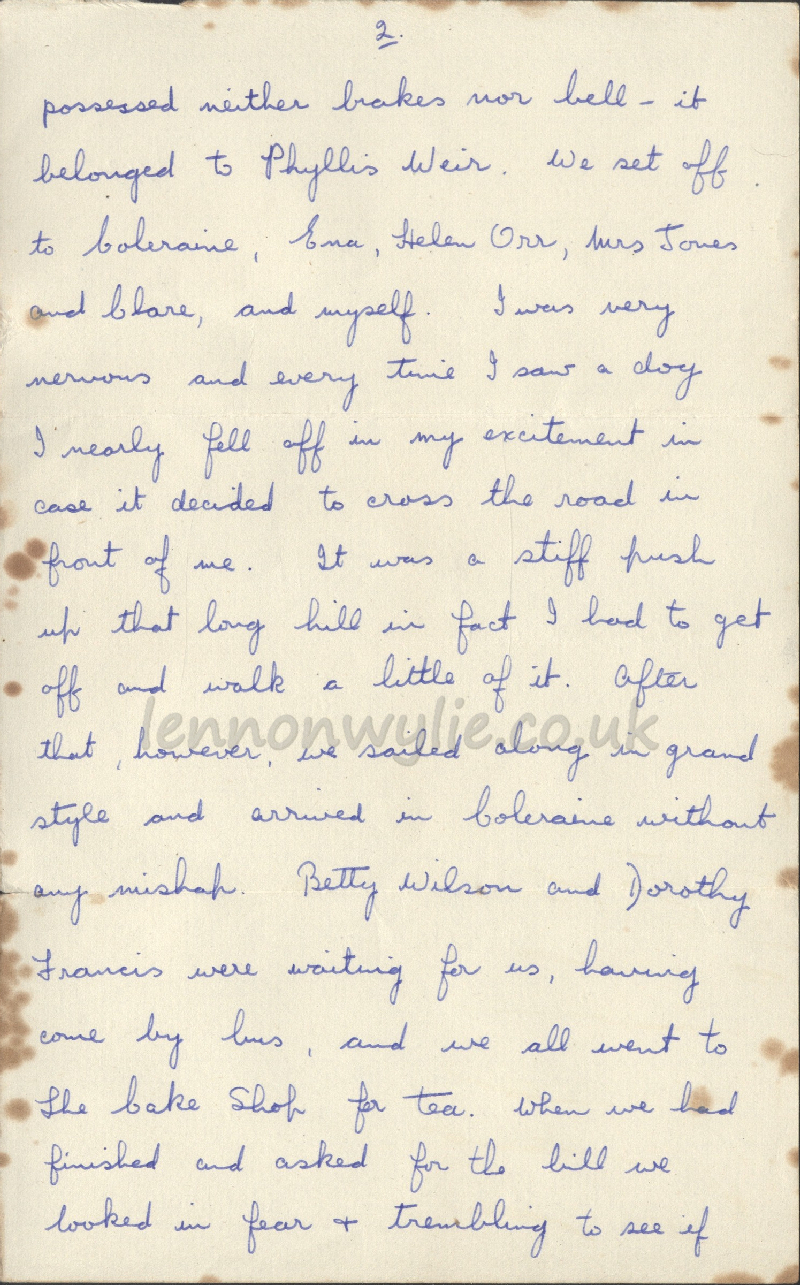 2.
possessed neither brakes nor bell - it
belonged to Phyllis Weir. We set off
to Coleraine, Ena, Helen Orr, Mrs Jones
and Clare, and myself. I was very
nervous and every time I saw a dog
I nearly fell off in my excitement in
case it decided to cross the road in
front of me. It was a stiff push
up that long hill in fact I had to get
off and walk a little of it. After
that, however, we sailed along in grand
style and arrived in Coleraine without
any mishap. Betty Wilson and Dorothy
Francis were waiting for us, having
come by bus, and we all went to
The Cake Shop for tea. When we had
finished and asked for the bill we
looked in fear + trembling to see if
lennonwylie.co.uk